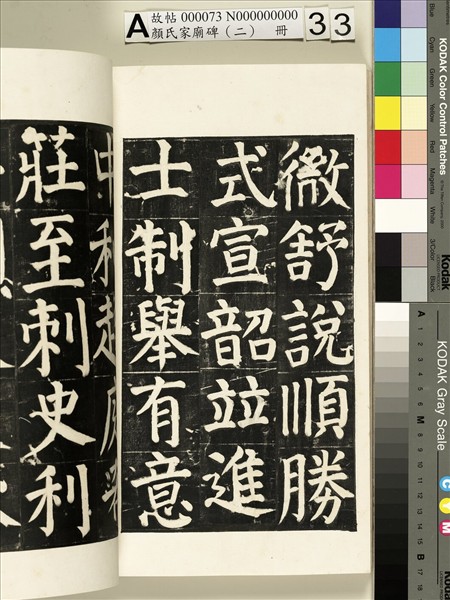 故帖 000073 N000000000
顏氏家廟碑（二） 冊
A
33
微舒說順勝
式宣韶竝進
士制舉有意
莊至刺史利
KODAK Color Control Patches
Blue
Cyan
Green
Yellow
Red
Magenta
White
3/Color
Black
Kodak
KODAK Gray Scale
A 1 2 3 4 5 6 M 8 9 10 11 12 13 14 15 B 17 18
C Y M
Kodak